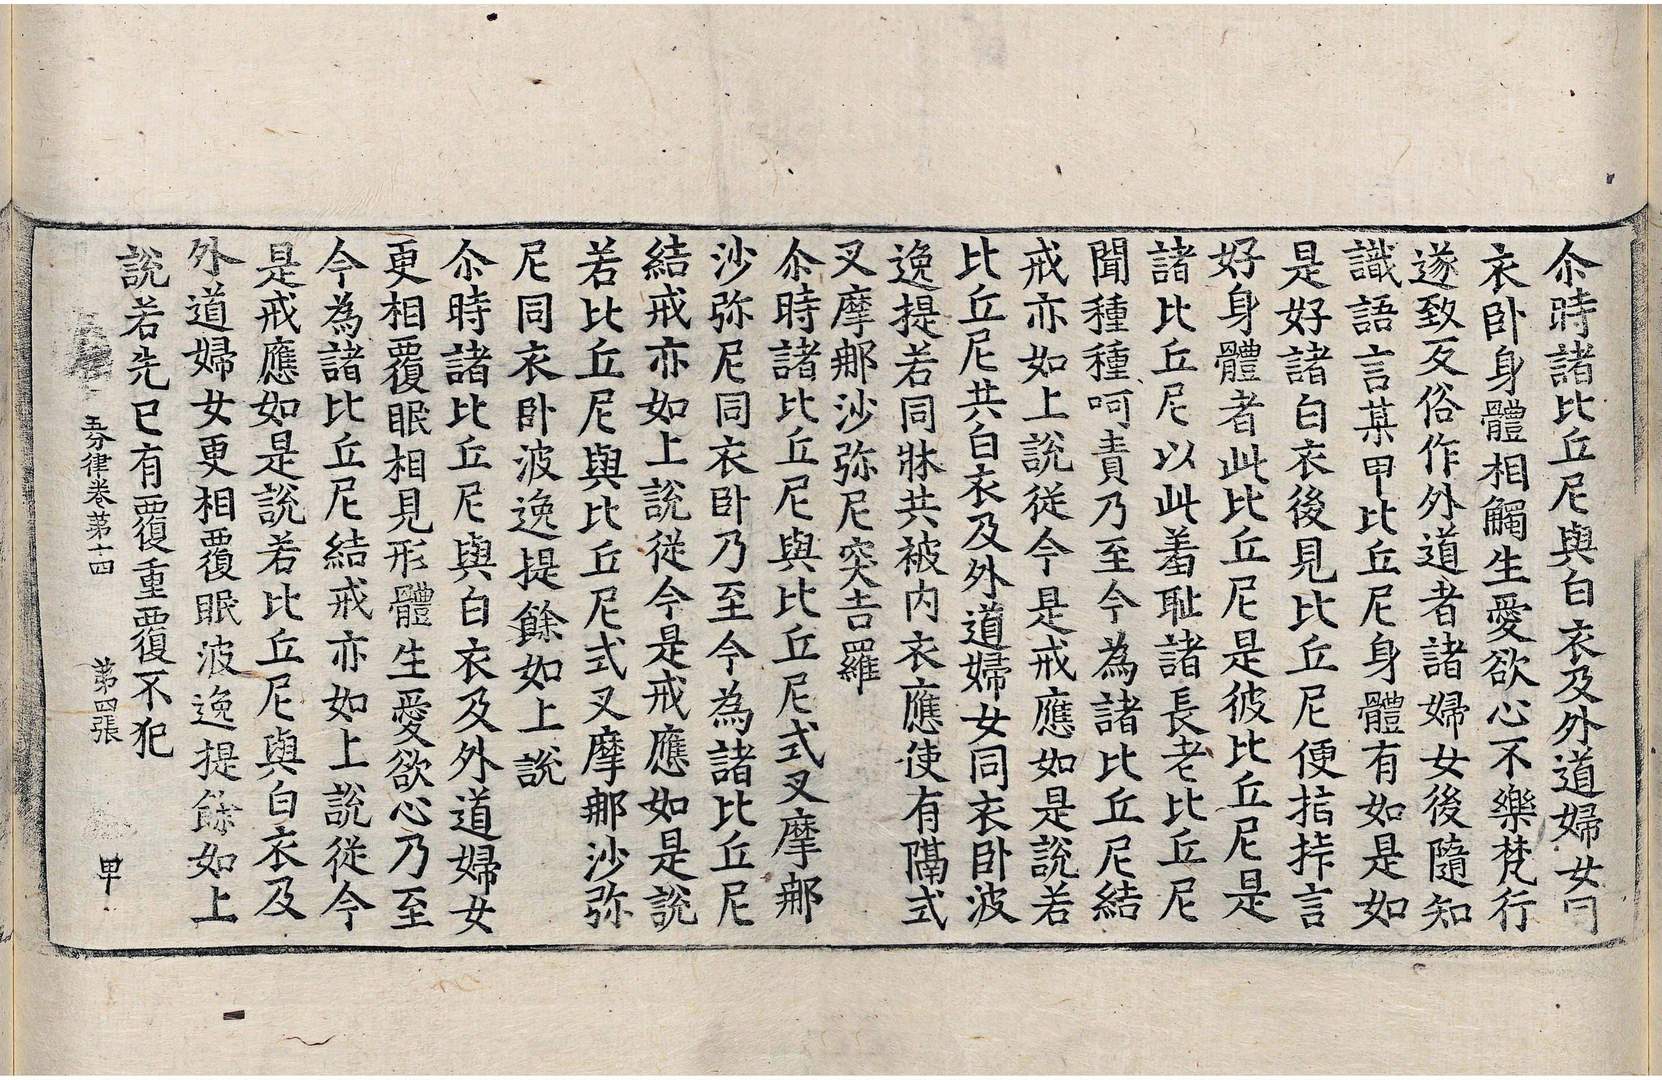 尒時諸比丘尼與白衣及外道婦女同
衣卧身體相觸生愛欲心不樂梵行
遂致反俗作外道者諸婦女後隨知
識語言某甲比丘尼身體有如是如
是好諸白衣後見比丘尼便指捽言
好身體者此比丘尼是彼比丘尼是
諸比丘尼以此羞耻諸長老比丘尼
聞種種呵責乃至今為諸比丘尼結
戒亦如上說從今是戒應如是說若
比丘尼共白衣及外道婦女同衣卧波
逸提若同牀共被內衣應使有隔式
叉摩那沙弥尼突吉羅
尒時諸比丘尼與比丘尼式叉摩那
沙弥尼同衣卧乃至今為諸比丘尼
結戒亦如上說從今是戒應如是說
若比丘尼與比丘尼式叉摩那沙弥
尼同衣卧波逸提餘如上說
尒時諸比丘尼與白衣及外道婦女
更相覆眠相見形體生愛欲心乃至
今為諸比丘尼結戒亦如上說從今
是戒應如是說若比丘尼與白衣及
外道婦女更相覆眠波逸提餘如上
說若先已有覆重覆不犯
五分律卷第十四 第四張 甲